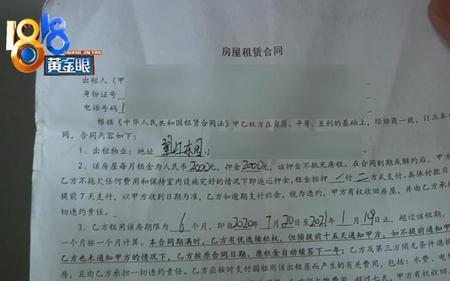 1818
HUANG JIN YAN
黄金眼
房屋租赁合同
出租人（甲
身份证号
电话号码1
根据《中华人民共和国租赁合同法》甲乙双方在自愿、平等、互利的基础上，经协商一致，订立本合
同，合同内容如下：
1、出租物业：地址
2、该房屋每月租金为人民币2000元，押金2000元，该押金不抵充房租。在合同到期或解约后，甲方
乙方不拖欠任何费用和保持室内设施完好的情况下即返还押金，租金按押一付二方式支付，具体付款日
提前7天支付，以甲方收到日期为准，乙方如逾期支付租金，视为违约，甲方有权收回房屋，并由乙方承
切违约责任。
3、乙方租用该房期限为6个月，即自2020年7月20日至2021年1月19日止，超过该租期，
一个月按一个月计算。本合同期满时，乙方有优先续租权，但须提前十五天通知甲方，如不提前通知甲
乙方也未通知甲方的情况下，乙方按原合同日期，原租金自动续签下一年；乙方及第三方须无条件退
房，且由乙方承担一切违约责任。乙方应按时支付因租用该出租屋而产生的有关费用，包括：水费、电